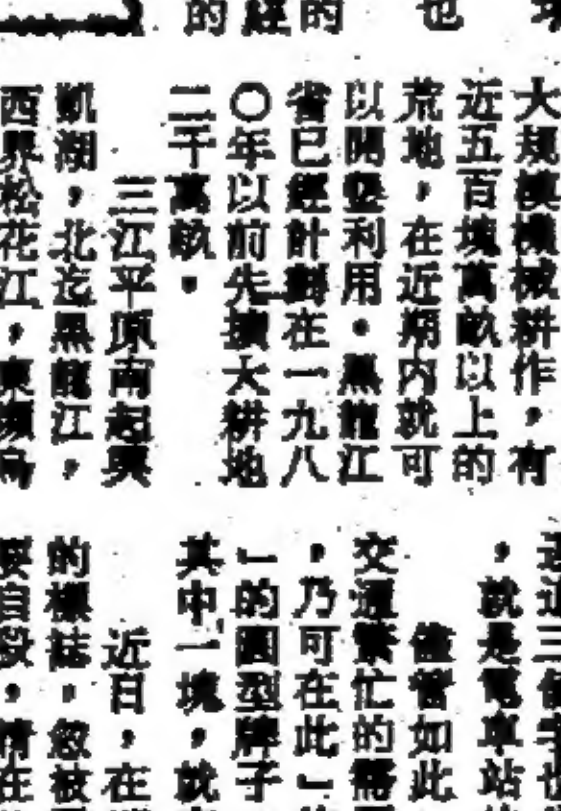 大規模機械耕作，有
近五百塊萬畝以上的
荒地，在近期內就可
以開墾利用。黑龍江
省已經計劃在一九八
〇年以前先擴大耕地
二千萬畝。
三江平原南起興
凱湖，北迄黑龍江，
西界松花江，東
也
的經的
，就是電車站
儘管如此
交通繁忙的
，乃可在此」
一的圓型牌子
其中一塊，就
近日，在
的標誌。忽被
自殺。